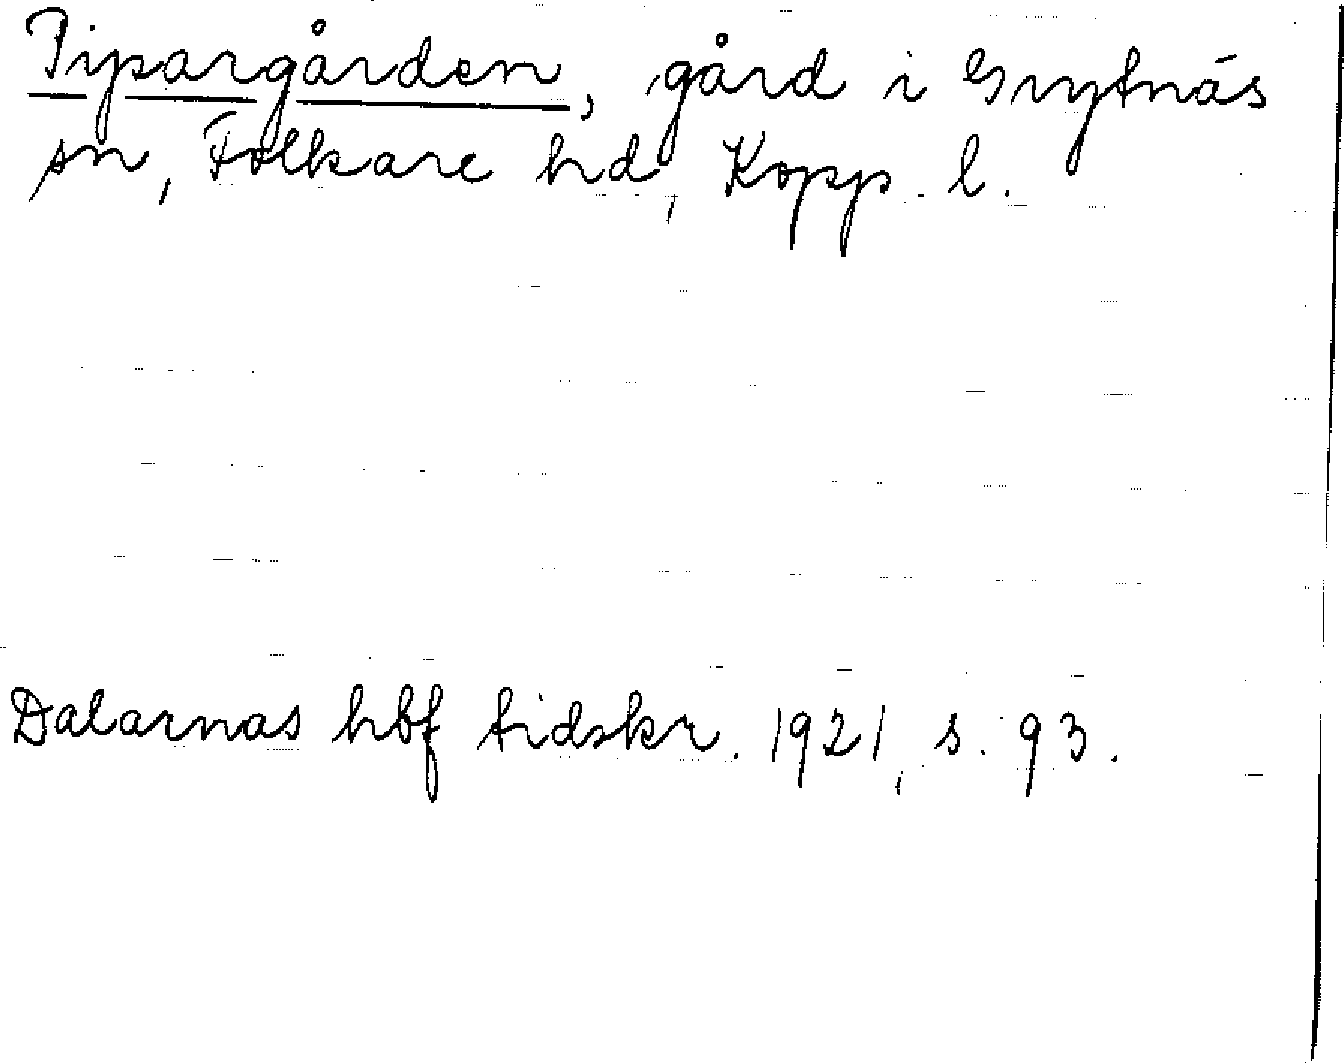 Pipargården, gård i Grytnäs
sn, Folkare hd, Kopp. l.
Dalarnas hbf tidskr. 1921, s. 93.